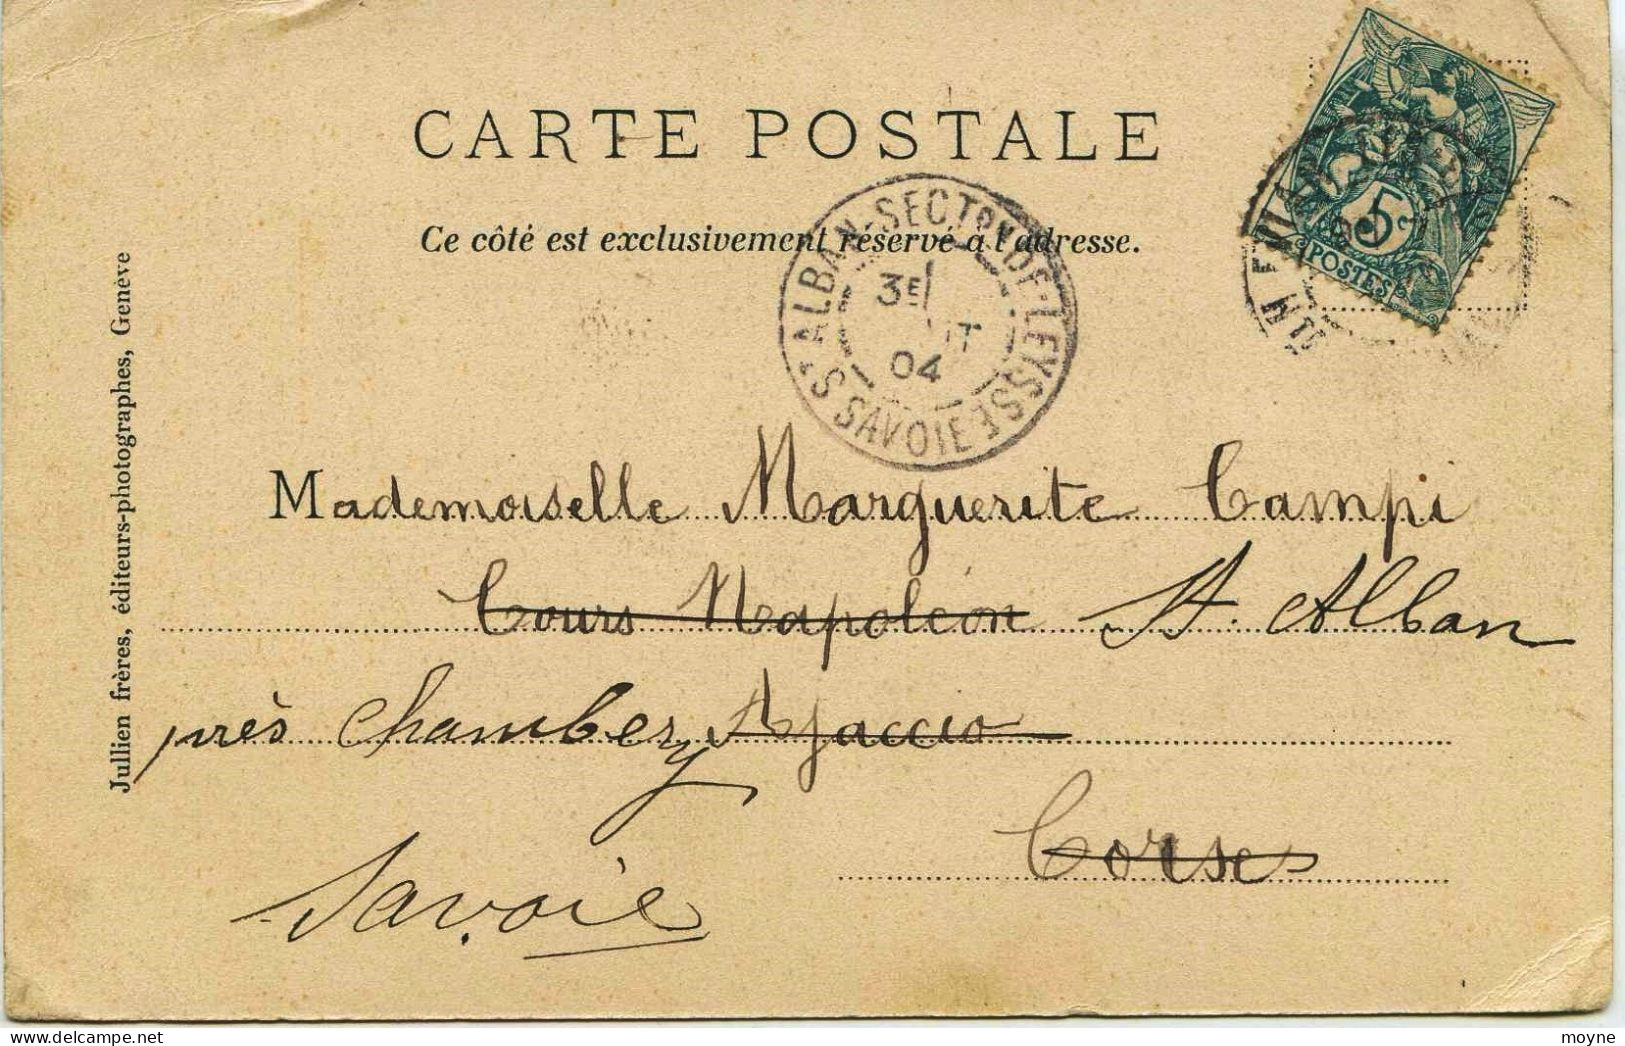 CARTE POSTALE
Ce côté est exclusivement réservé à l'adresse.
ALBAN-SECTON DE-LEYSSE
3E
04
SAVOIE
5
POSTES
Mademoiselle Marguerite Campi
Cours Napoléon St. Alban
près Chambéry Ajaccio
Corse
Savoie
Jullien frères, éditeurs-photographes, Genève
moyne